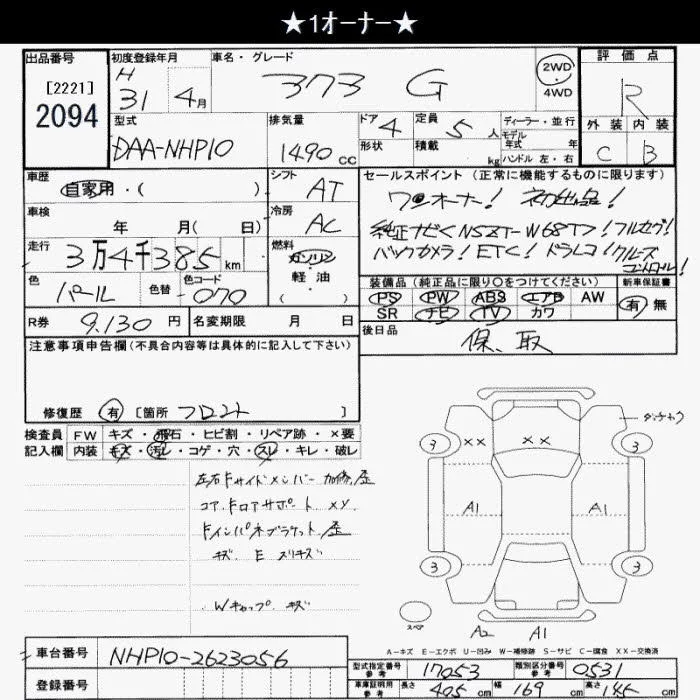 ★1オーナー★
出品番号 初度登録年月 車名・グレード 評価点
[2221] 2094 H 31 4月 アクア G 2WD 4WD R
型式 排気量 ドア 4 定員 5人 ディーラー・並行 外装 内装
DAA-NHP10 1490cc 形状 積載 kg モデル年式 年 ハンドル 左・右 C B
車歴 自家用・( ) シフト AT セールスポイント (正常に機能するものに限ります)
車検 年 月( 日) 冷房 AC ワンオーナー! 初出品!
走行 3万4千385km 燃料 ガソリン 軽油 ( ) 純正ナビ<NSZT-W68T>! フルセグ!
バックカメラ! ETC! ドラレコ! クルーズコントロール!
色 パール 色替 色コード 070 装備品 (純正品に限り〇をつけてください) 新車保証書
PS PW ABS エアB AW 有 無
SR ナビ TV カワ
R券 9,130円 名変期限 月 日 後日品
注意事項申告欄(不具合内容等は具体的に記入して下さい) 保、取
修復歴 有 [箇所 フロント ]
検査員記入欄 FW キズ・飛石・ヒビ割・リペア跡・×要
内装 キズ・汚レ・コゲ・穴・スレ・キレ・破レ
左右Fサイドメンバー 加修、歪
コア、Fロアサポート XX
Fインパネブラケット 歪
キズ E スリキズ
Wキャップ キズ
3 ×× ×× 3
A1 A1
3 3
スペア A2 A1
A-キズ E-エクボ U-凹み W-補修跡 S-サビ C-腐食 XX-交換済
車台番号 NHP10-2623056
型式指定番号 参考 17053 類別区分番号 参考 0531
登録番号 車庫証明用 参考 長さ 405cm 幅 169cm 高さ 145cm